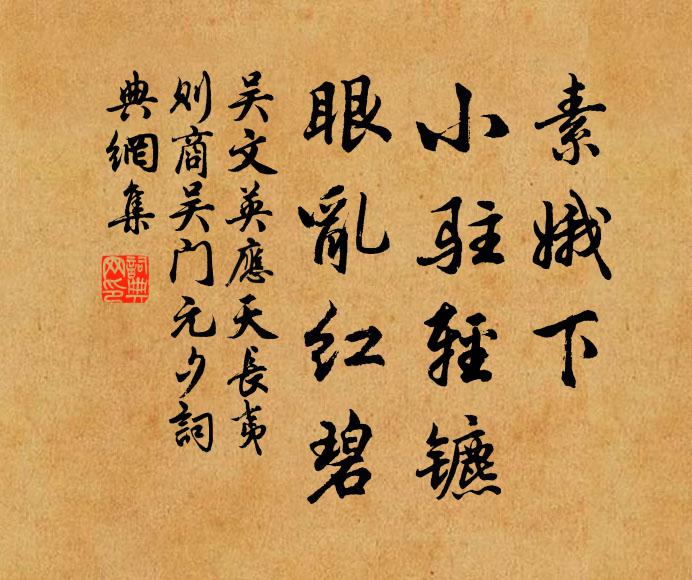 素娥下
小駐輕镳
眼亂红碧
吴文英應天長夷
则商吴門元夕詞
典網集
詞典
网印